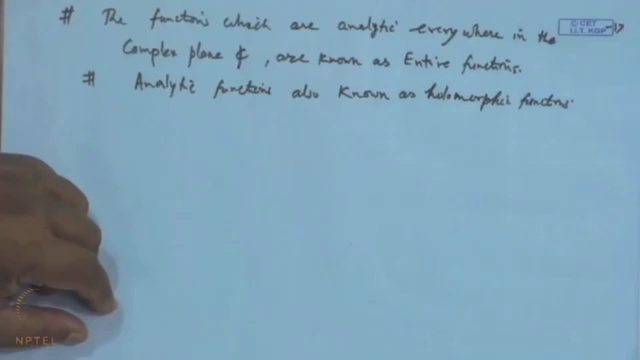 # The functions which are analytic everywhere in the
© CET
I.I.T. KGP
Complex plane ₵, are known as Entire functions.
# Analytic functions also known as holomorphic functions.
NPTEL